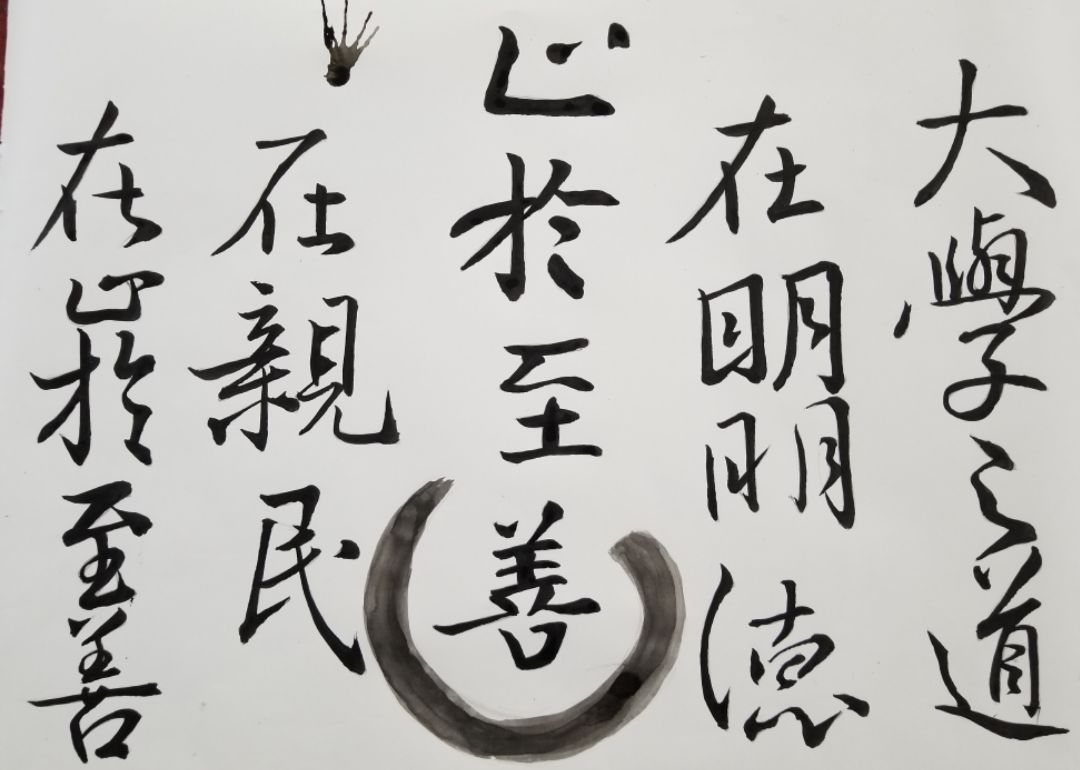 大學之道
在明明德
止於至善
在親民
在止於至善